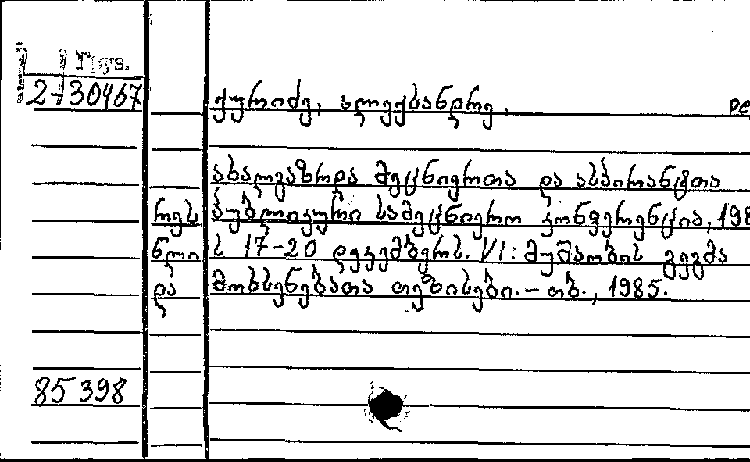 2-30467
ქურიძე, ალექსანდრე, რე
ახალგაზრდა მეცნიერთა და ასპირანტთა
რეს პუბლიკური სამეცნიერო კონფერენცია, 198
ნლი ს 17-20 დეკემბერს. VI: მუშაობის გეგმა
და მოხსენებათა თეზისები. - თბ., 1985.
85 398